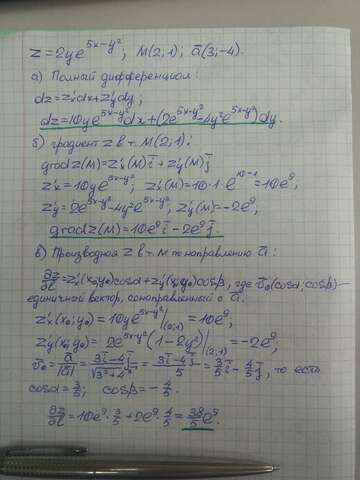 z=2ye^{5x-y²}; M(2;1); ā(3;-4).
а) Полный дифференциал:
dz=z'ₓdx+z'ᵧdy;
dz=10ye^{5x-y²}dx+(2e^{5x-y²}-4y²e^{5x-y²})dy.
б) градиент z в т. M(2;1):
gradz(M)=z'ₓ(M)ī+z'ᵧ(M)j̄
z'ₓ=10ye^{5x-y²}; z'ₓ(M)=10·1·e^{10-1}=10e⁹;
z'ᵧ=2e^{5x-y²}-4y²e^{5x-y²}; z'ᵧ(M)=-2e⁹;
gradz(M)=10e⁹ī-2e⁹j̄.
в) Производная z в т. M по направлению ā:
∂z/∂l=z'ₓ(x₀;y₀)cosα+z'ᵧ(x₀;y₀)cosβ, где v̄₀(cosα;cosβ)-
единичный вектор, сонаправленный с ā.
z'ₓ(x₀;y₀)=10ye^{5x-y²}|₍₂;₁₎=10e⁹;
z'ᵧ(x₀;y₀)=2e^{5x-y²}(1-2y²)|₍₂;₁₎=-2e⁹;
v̄₀=ā/|ā|=(3ī-4j̄)/√(3²+4²)=(3ī-4j̄)/5=3/5ī-4/5j̄, то есть
cosα=3/5; cosβ=-4/5.
∂z/∂l=10e⁹·3/5+2e⁹·4/5=38/5e⁹.